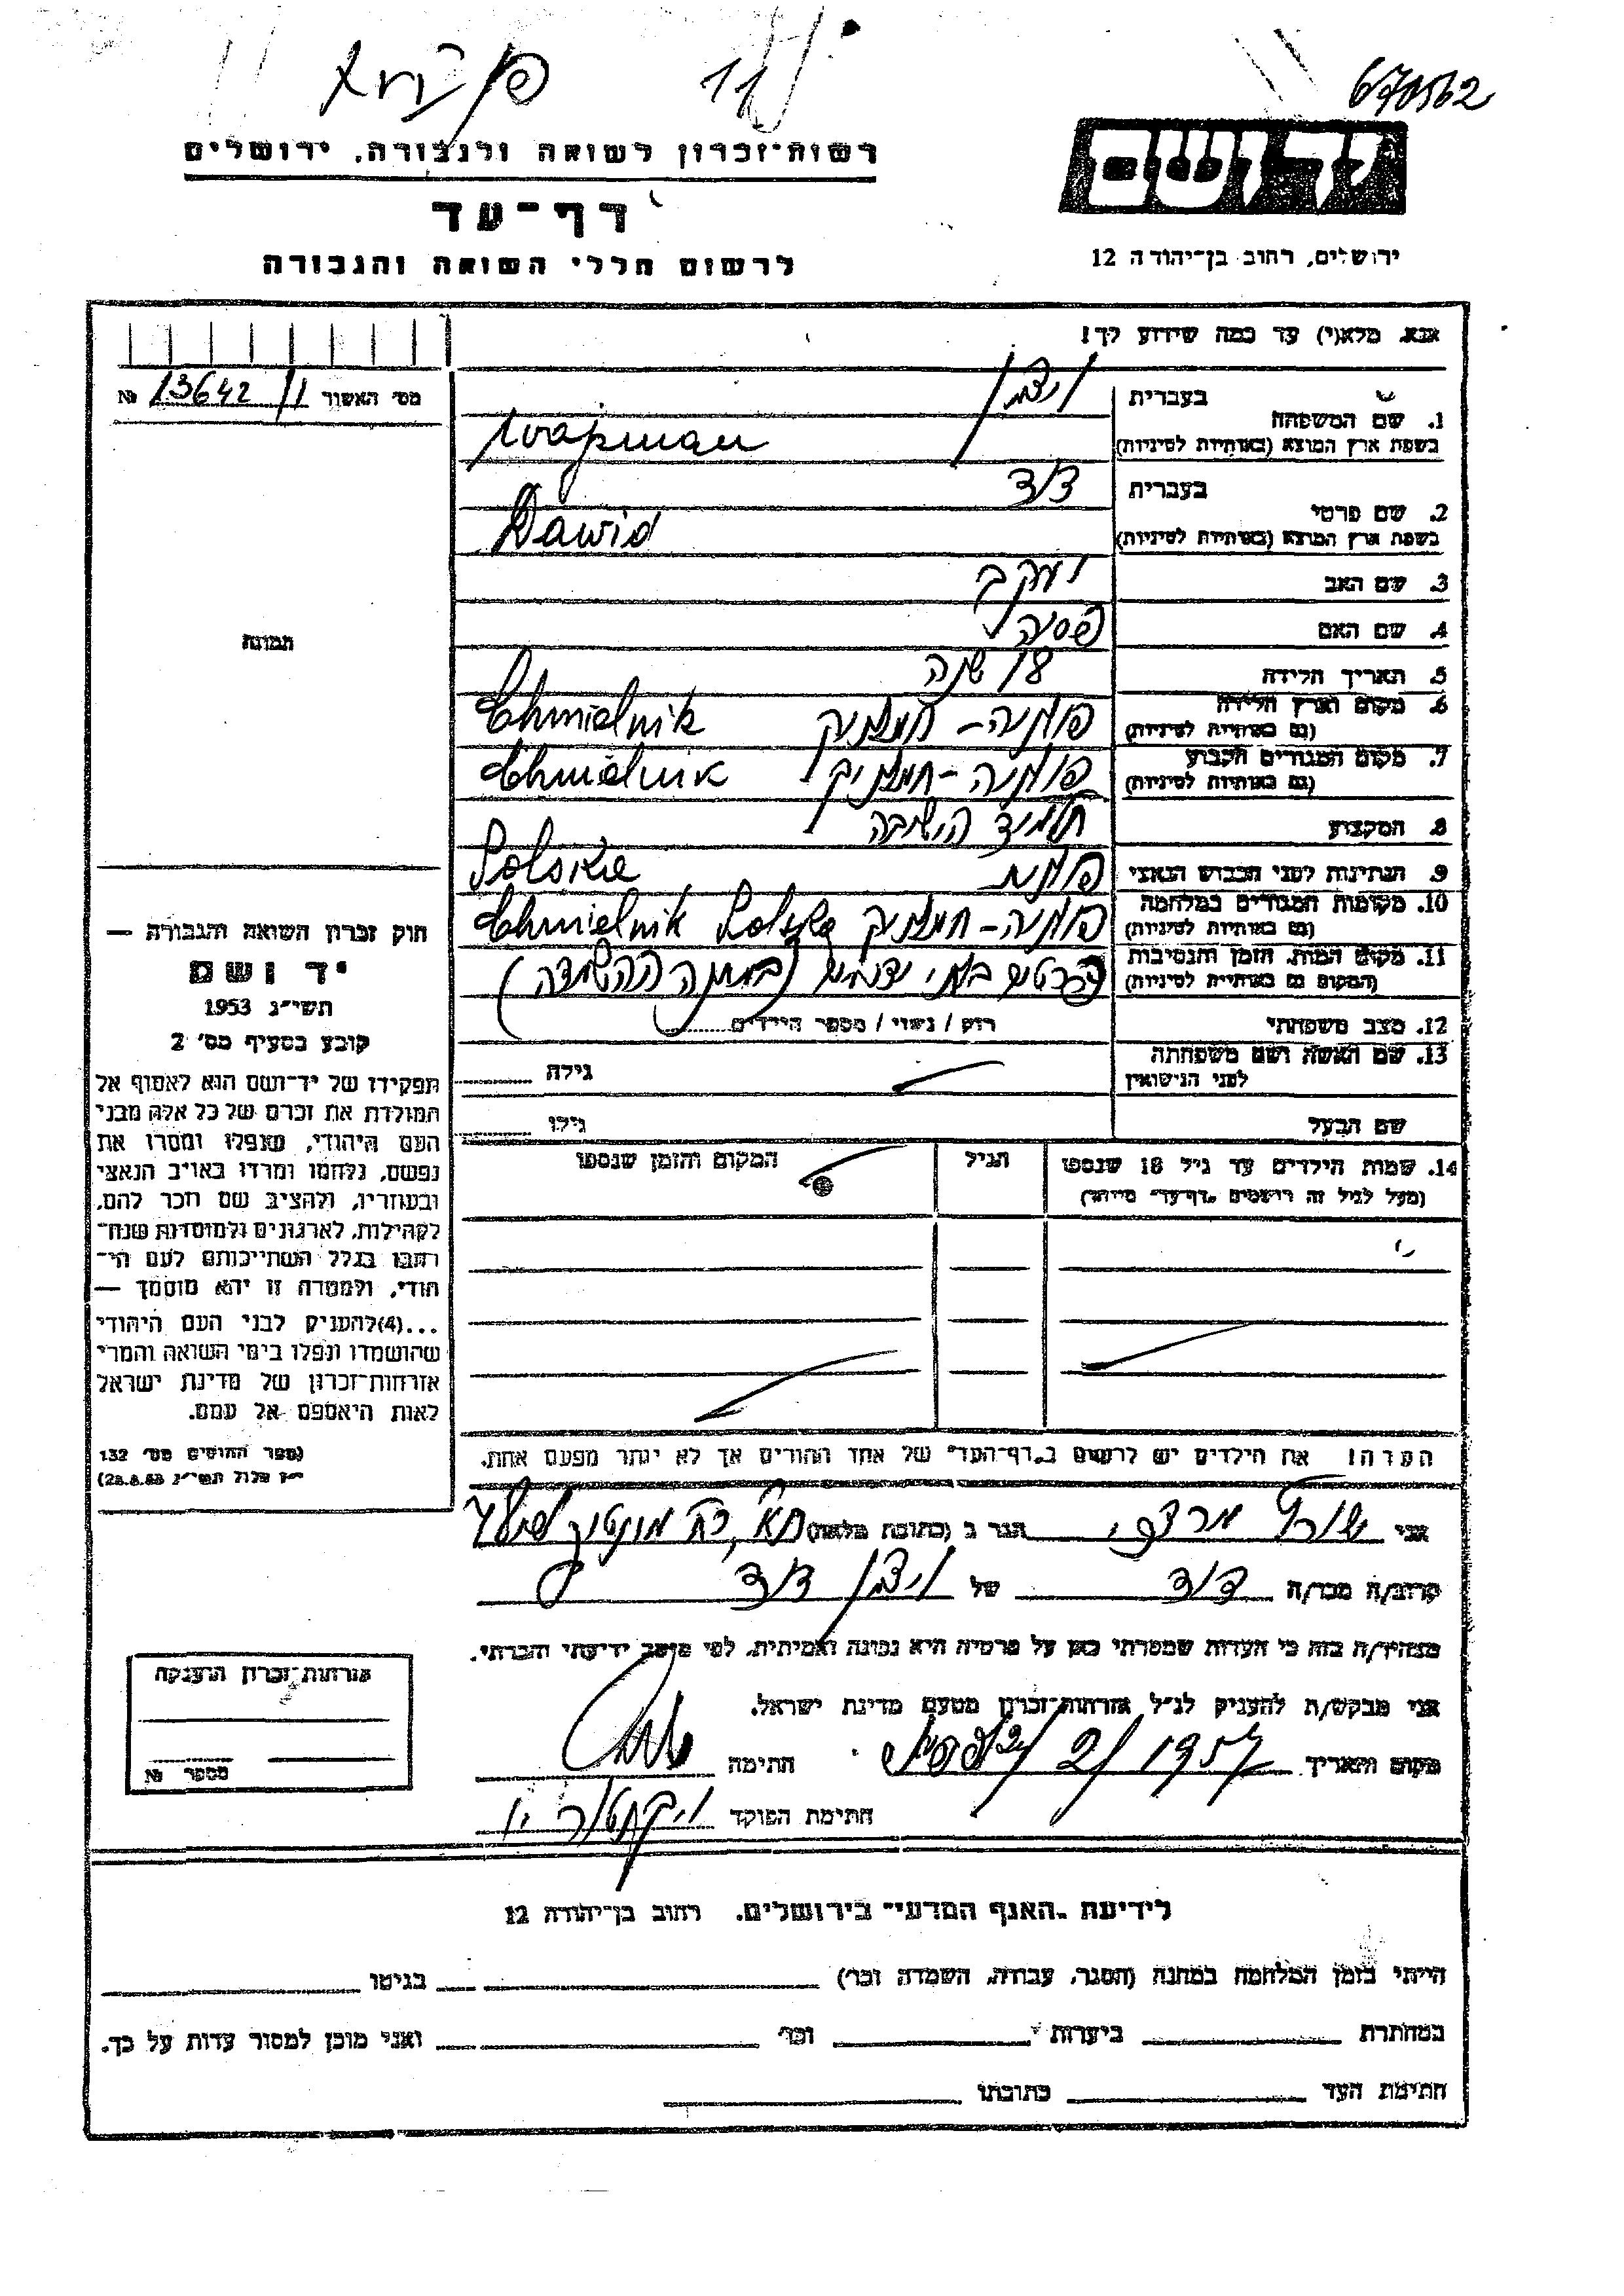 670562
11
רשות־זכרון לשואה ולגבורה, ירושלים
יד ושם
דף־עד
לרשום חללי השואה והגבורה
ירושלים, רחוב בן־יהודה 12
אנא, מלא(י) עד כמה שידוע לך!
מס׳ האשור 13642/1 №
1. שם המשפחה
בעברית
בשפת ארץ המוצא (באותיות לטיניות) Wajsman
2. שם פרטי
בעברית דוד
בשפת ארץ המוצא (באותיות לטיניות) Dawid
3. שם האב יעקב
4. שם האם
5. תאריך הלידה 18 שנה
6. מקום וארץ הלידה (גם באותיות לטיניות) פולניה - חמלניק Chmielnik
7. מקום המגורים הקבוע (גם באותיות לטיניות) פולניה - חמלניק Chmielnik
8. המקצוע תלמיד הישיבה
9. הנתינות לפני הכבוש הנאצי פולנית Polska
10. מקומות המגורים במלחמה (גם באותיות לטיניות) פולניה - חמלניק Chmielnik Polska
11. מקום המות, הזמן והנסיבות (המקום גם באותיות לטיניות) (במחנה ההשמדה)
12. מצב משפחתי רווק / נשוי / מספר הילדים
13. שם האשה ושם משפחתה לפני הנישואין גילה
שם הבעל גילו
14. שמות הילדים עד גיל 18 שנספו (מעל לגיל זה רושמים „דף־עד״ מיוחד) הגיל המקום והזמן שנספו
הערה! את הילדים יש לרשום ב„דף־העד״ של אחד ההורים אך לא יותר מפעם אחת.
תמונה
חוק זכרון השואה והגבורה —
יד ושם
תשי״ג 1953
קובע בסעיף מס׳ 2
תפקידו של יד־ושם הוא לאסוף אל
המולדת את זכרם של כל אלה מבני
העם היהודי, שנפלו ומסרו את
נפשם, נלחמו ומרדו באויב הנאצי
ובעוזריו, ולהציב שם וזכר להם,
לקהילות, לארגונים ולמוסדות שנח־
רבו בגלל השתייכותם לעם הי־
הודי, ולמטרה זו יהא מוסמך —
...(4) להעניק לבני העם היהודי
שהושמדו ונפלו בימי השואה והמרי
אזרחות־זכרון של מדינת ישראל
לאות היאספם אל עמם.
(ספר החוקים מס׳ 132
י״ז אלול תשי״ג 28.8.53)
אני מרדכי הגר ב (כתובת מלאה) ת״א, רח׳
קרוב/ה מכר/ה דוד של דוד
מצהיר/ה בזה כי העדות שמסרתי כאן על פרטיה היא נכונה ואמיתית, לפי מיטב ידיעתי והכרתי.
אני מבקש/ת להעניק לנ״ל אזרחות־זכרון מטעם מדינת ישראל.
מקום ותאריך 1957 חתימה
חתימת הפוקד
אזרחות־זכרון הוענקה
מספר №
לידיעת „האגף המדעי״ בירושלים, רחוב בן־יהודה 12
הייתי בזמן המלחמה במחנה (הסגר, עבודה, השמדה וכו׳) בגיטו
במחתרת ביערות וכו׳ ואני מוכן למסור עדות על כך.
חתימת העד כתובתו